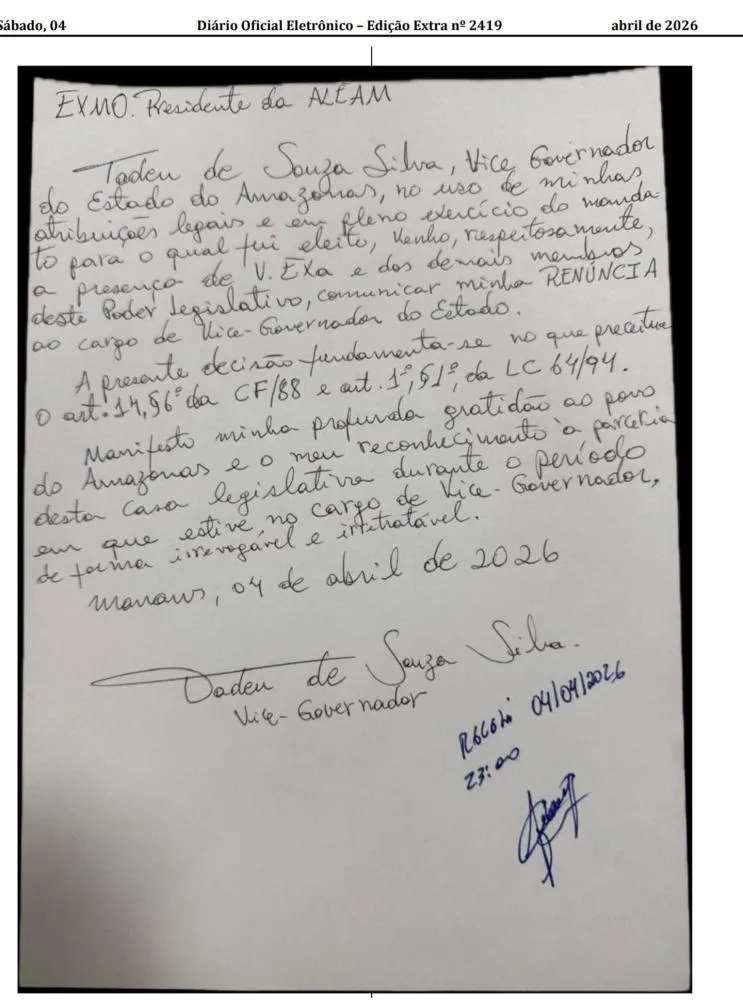 Sábado, 04 Diário Oficial Eletrônico – Edição Extra nº 2419 abril de 2026
EXMO. Presidente da ALEAM
Tadeu de Souza Silva, Vice Governador
do Estado do Amazonas, no uso de minhas
atribuições legais e em pleno exercício do manda-
to para o qual fui eleito, venho, respeitosamente,
a presença de V. EXa e dos demais membros
deste Poder Legislativo, comunicar minha RENÚNCIA
ao cargo de Vice-Governador do Estado.
A presente decisão fundamenta-se no que preceitua
o art. 14, §6º da CF/88 e art. 1º, §1º, da LC 64/94.
Manifesto minha profunda gratidão ao povo
do Amazonas e o meu reconhecimento à parceria
desta Casa legislativa durante o período
em que estive no cargo de Vice-Governador,
de forma irrevogável e irretratável.
Manaus, 04 de abril de 2026
Tadeu de Souza Silva.
Vice-Governador
Recebi 04/04/2026
23:00